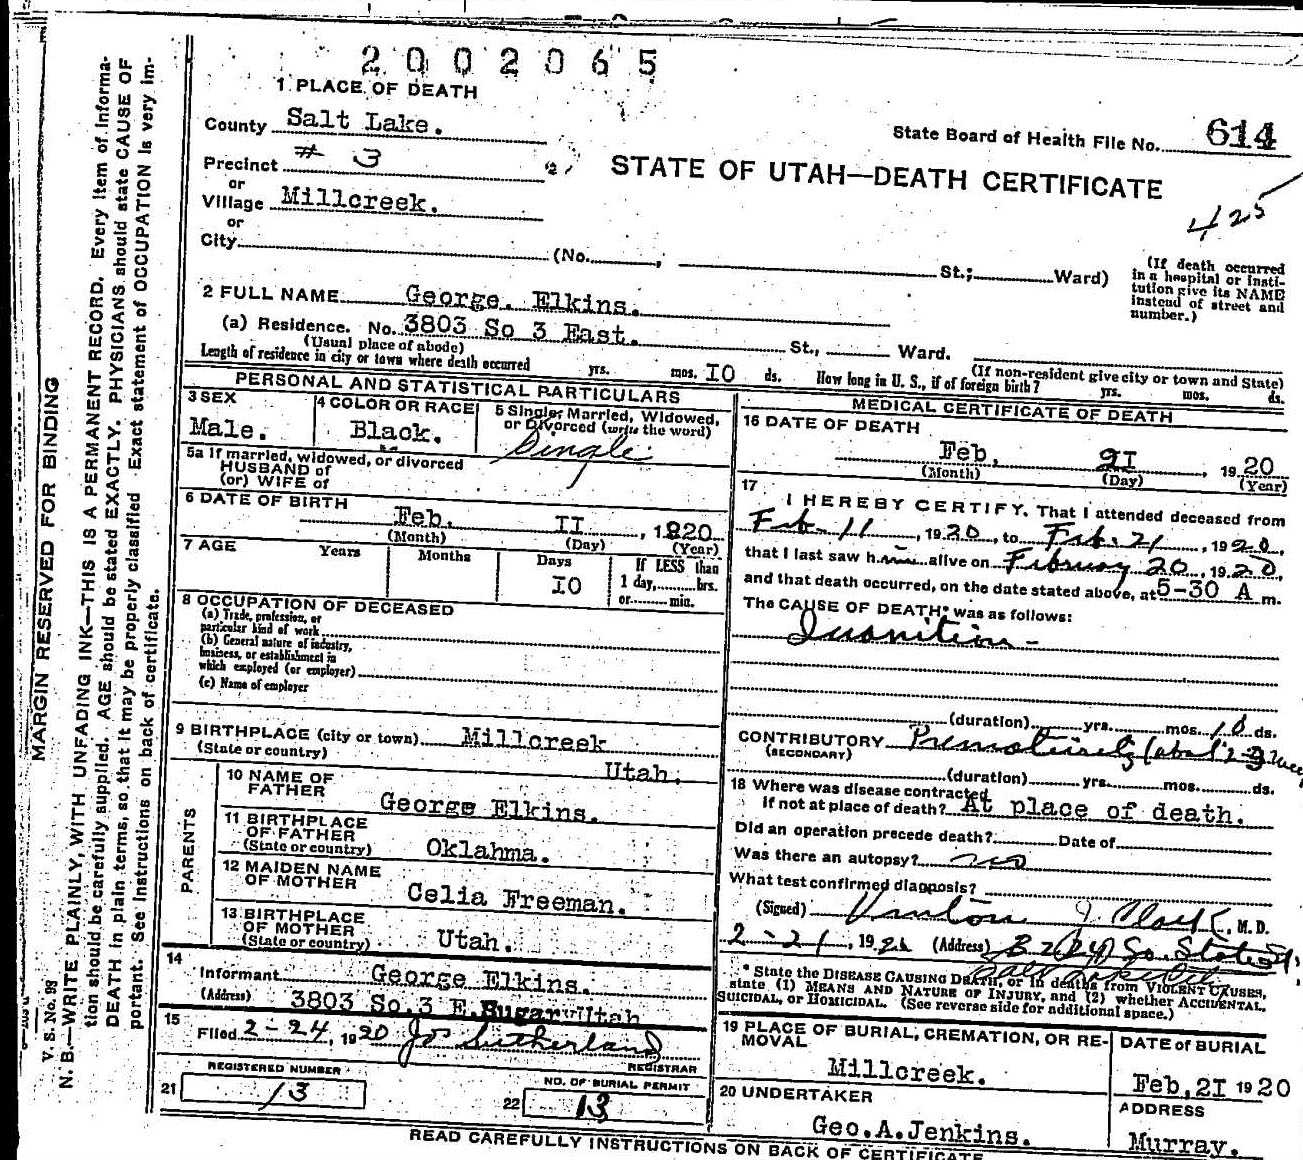 2002065
1 PLACE OF DEATH
County Salt Lake.
State Board of Health File No. 614
Precinct # 3
STATE OF UTAH—DEATH CERTIFICATE
or
Village Millcreek.
425
or
City (No. , St.; Ward)
(If death occurred
in a hospital or insti-
tution give its NAME
instead of street and
number.)
2 FULL NAME George. Elkins.
(a) Residence. No. 3803 So 3 East. St., Ward.
(Usual place of abode)
(If non-resident give city or town and State)
Length of residence in city or town where death occurred yrs. mos. IO ds. How long in U. S., if of foreign birth? yrs. mos. ds.
PERSONAL AND STATISTICAL PARTICULARS
3 SEX
Male.
4 COLOR OR RACE
Black.
5 Single, Married, Widowed,
or Divorced (write the word)
Single
5a If married, widowed, or divorced
HUSBAND of
(or) WIFE of
6 DATE OF BIRTH
Feb. II , 1920
(Month) (Day) (Year)
7 AGE Years Months Days If LESS than
1 day, hrs.
or min.
IO
8 OCCUPATION OF DECEASED
(a) Trade, profession, or
particular kind of work
(b) General nature of industry,
business, or establishment in
which employed (or employer)
(c) Name of employer
9 BIRTHPLACE (city or town) Millcreek
(State or country) Utah.
PARENTS
10 NAME OF
FATHER George Elkins.
11 BIRTHPLACE
OF FATHER
(State or country) Oklahma.
12 MAIDEN NAME
OF MOTHER Celia Freeman.
13 BIRTHPLACE
OF MOTHER
(State or country) Utah.
14
Informant George Elkins.
(Address) 3803 So.3 E.Sugar Utah
15
Filed 2-24, 1920 Jos Sutherland
REGISTRAR
REGISTERED NUMBER
21 13
NO. OF BURIAL PERMIT
22 13
MEDICAL CERTIFICATE OF DEATH
16 DATE OF DEATH
Feb, 2I , 1920
(Month) (Day) (Year)
17
I HEREBY CERTIFY, That I attended deceased from
Feb. 11 , 1920, to Feb. 21 , 1920,
that I last saw him alive on February 20, 1920,
and that death occurred, on the date stated above, at 5-30 A m.
The CAUSE OF DEATH* was as follows:
Inanition -
(duration) yrs. mos. 10 ds.
CONTRIBUTORY Prematurity
(SECONDARY)
(duration) yrs. mos. ds.
18 Where was disease contracted
if not at place of death? At place of death.
Did an operation precede death? Date of
Was there an autopsy? no
What test confirmed diagnosis?
(Signed) J Clark, M. D.
2-21, 192 (Address) So. State St,
Salt Lake
* State the DISEASE CAUSING DEATH, or in deaths from VIOLENT CAUSES,
state (1) MEANS AND NATURE OF INJURY, and (2) whether ACCIDENTAL,
SUICIDAL, or HOMICIDAL. (See reverse side for additional space.)
19 PLACE OF BURIAL, CREMATION, OR RE-
MOVAL
Millcreek.
DATE of BURIAL
Feb,2I 1920
20 UNDERTAKER
Geo.A.Jenkins.
ADDRESS
Murray.
READ CAREFULLY INSTRUCTIONS ON BACK OF CERTIFICATE
MARGIN RESERVED FOR BINDING
V. S. No. 98
N. B.—WRITE PLAINLY, WITH UNFADING INK—THIS IS A PERMANENT RECORD. Every item of informa-
tion should be carefully supplied. AGE should be stated EXACTLY. PHYSICIANS should state CAUSE OF
DEATH in plain terms, so that it may be properly classified. Exact statement of OCCUPATION is very im-
portant. See instructions on back of certificate.